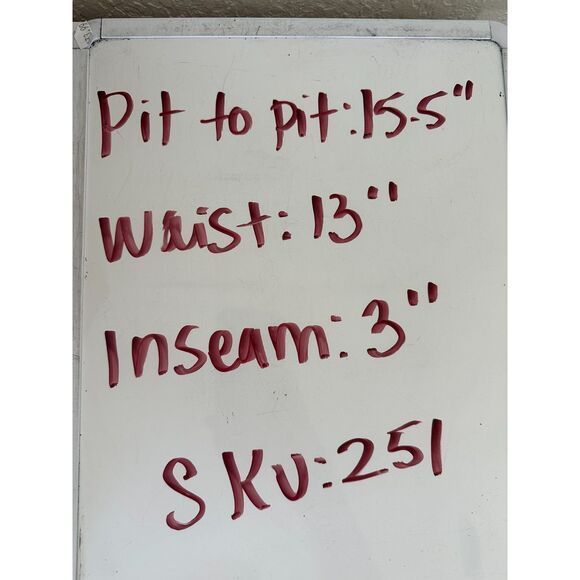 Pit to pit: 15.5"
Waist: 13"
Inseam: 3"
SKU: 251